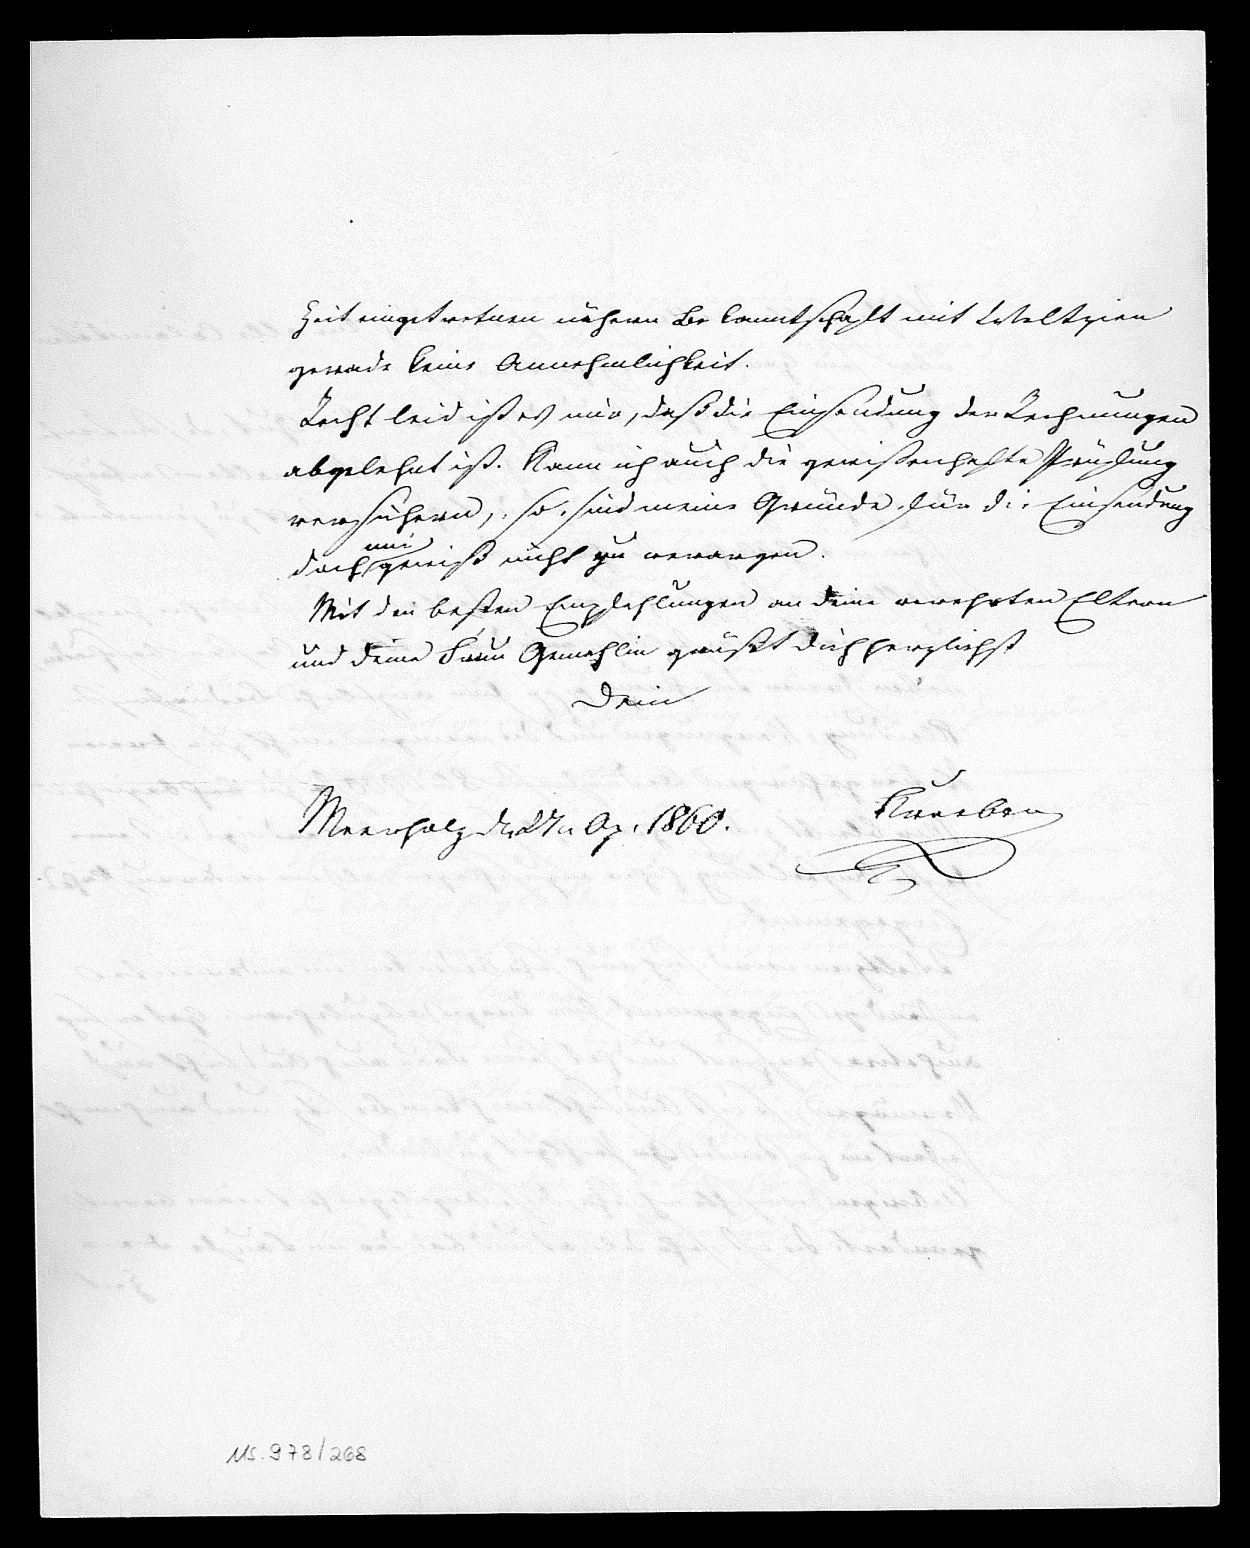 Zeit eingetretnen nähern Bekanntschaft mit Weltzien
gerade keine Annehmlichkeit.
Recht leid ist es mir, daß die Einsendung der Rechnungen
abgelehnt ist. Kann ich auch die gewissenhafte Prüfung
versichern, so sind meine Gründe für die Einsendung
mir
doch gewiß nicht zu verargen.
Mit den besten Empfehlungen an deine verehrten Eltern
und deine Frau Gemahlin grüßt dich herzlichst
Dein
Meerholz d. 27n Ap. 1860.
Ms. 978/268